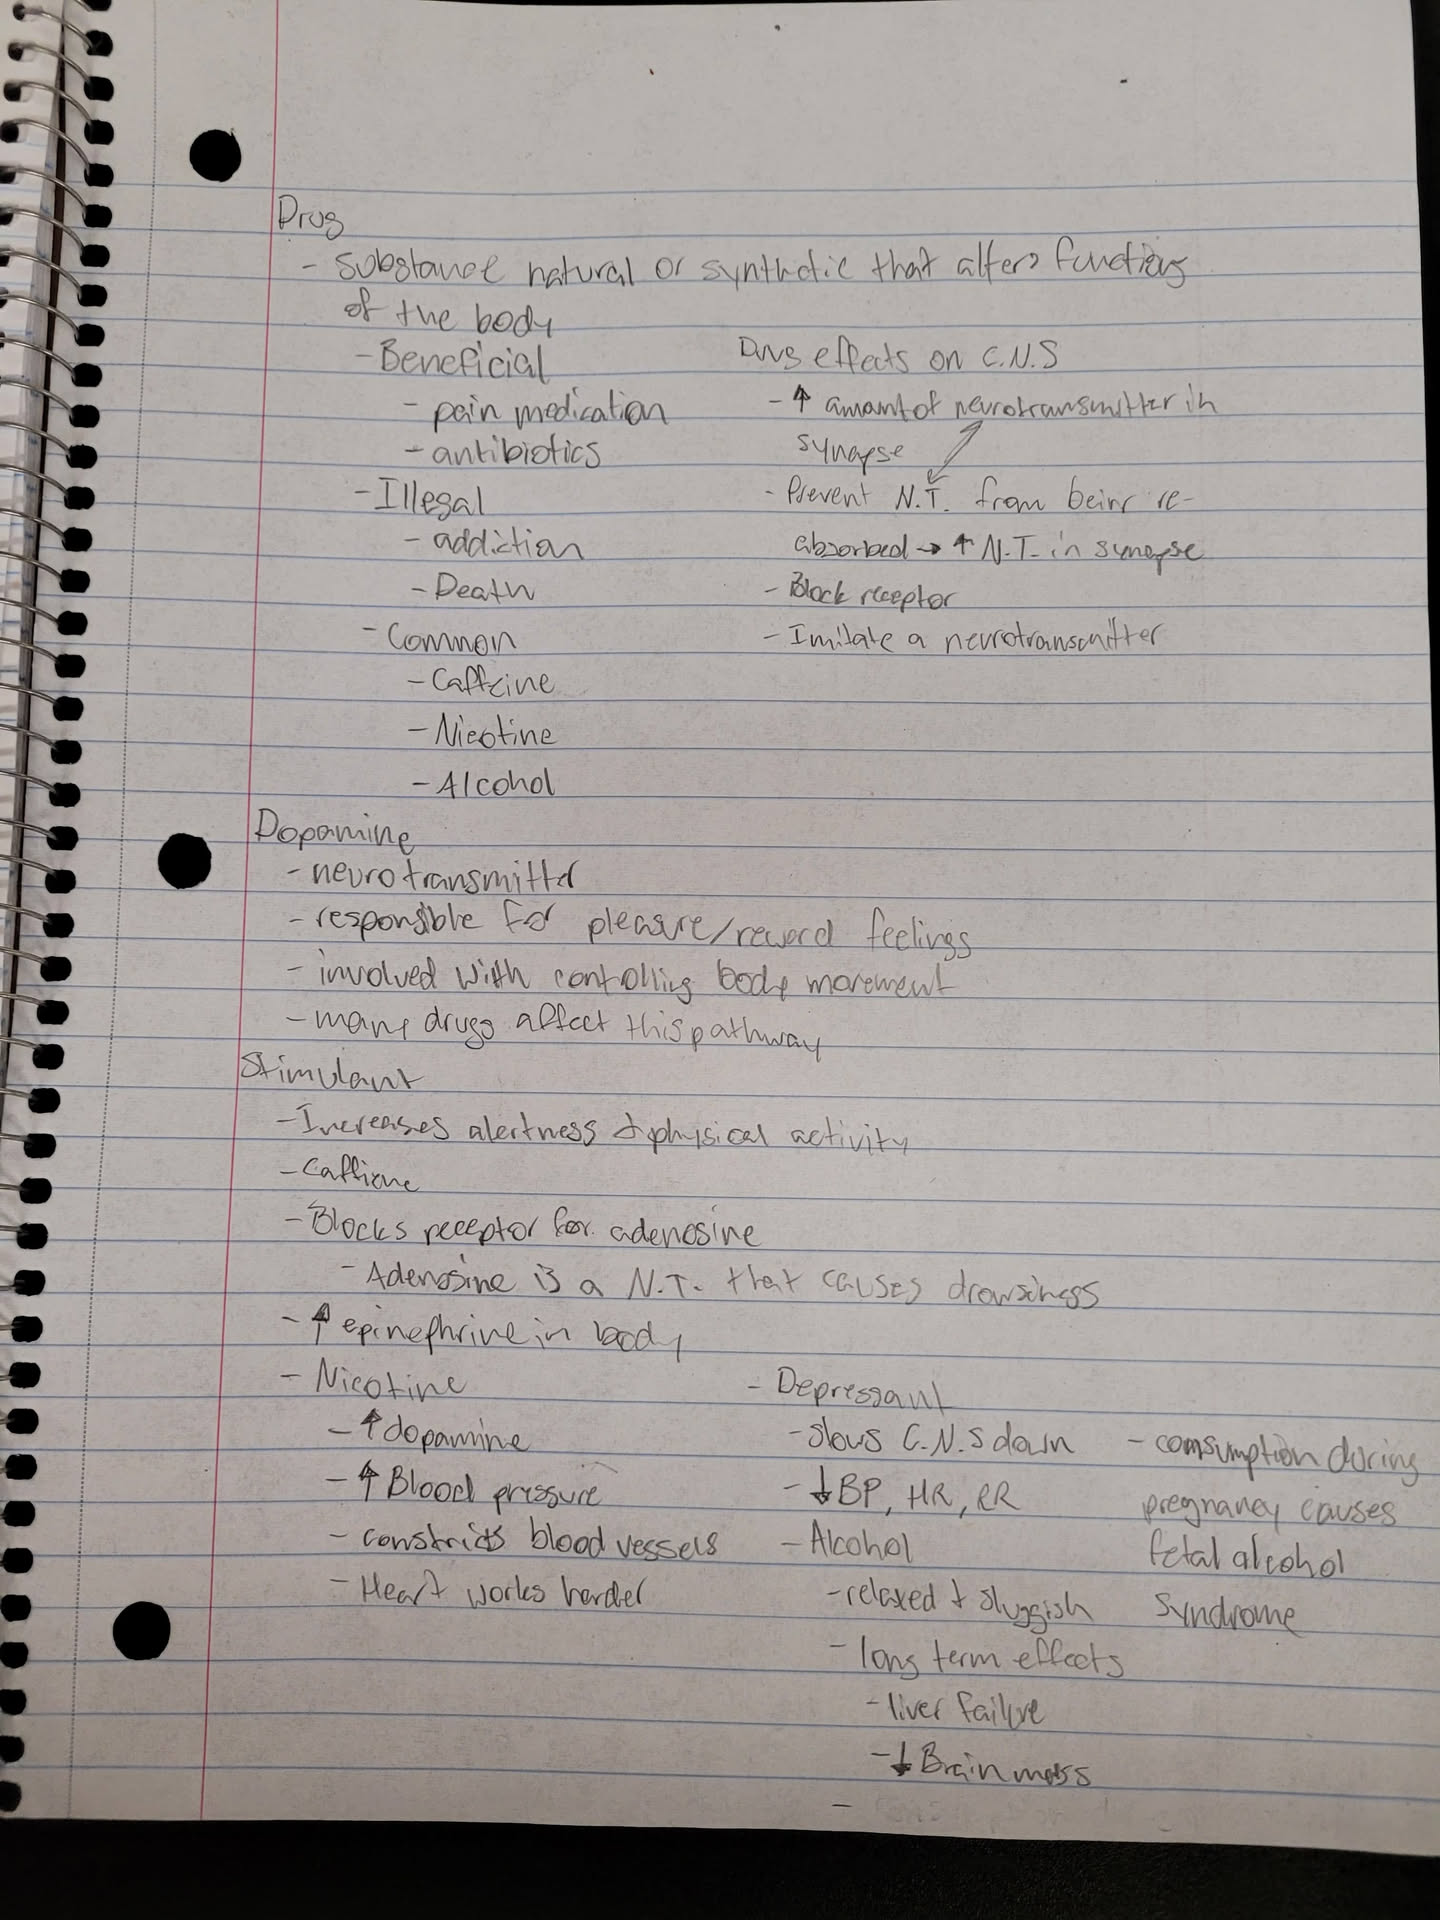 Drug
- substance natural or synthetic that alters functions
of the body
- Beneficial
- pain medication
- antibiotics
- Illegal
- addiction
- Death
- Common
- Caffeine
- Nicotine
- Alcohol
Drug effects on C.N.S
- ↑ amount of neurotransmitter in
synapse
- Prevent N.T. from being re-
absorbed → ↑ N.T. in synapse
- Block receptor
- Imitate a neurotransmitter
Dopamine
- neurotransmitter
- responsible for pleasure/reward feelings
- involved with controlling body movement
- many drugs affect this pathway
Stimulant
- Increases alertness + physical activity
- Caffiene
- Blocks receptor for adenosine
- Adenosine is a N.T. that causes drowsiness
- ↑ epinephrine in body
- Nicotine
- ↑ dopamine
- ↑ Blood pressure
- constricts blood vessels
- Heart works harder
- Depressant
- slows C.N.S down
- ↓ BP, HR, RR
- Alcohol
- relaxed + sluggish
- long term effects
- liver failure
- ↓ Brain mass
-
- comsumption during
pregnancy causes
fetal alcohol
syndrome